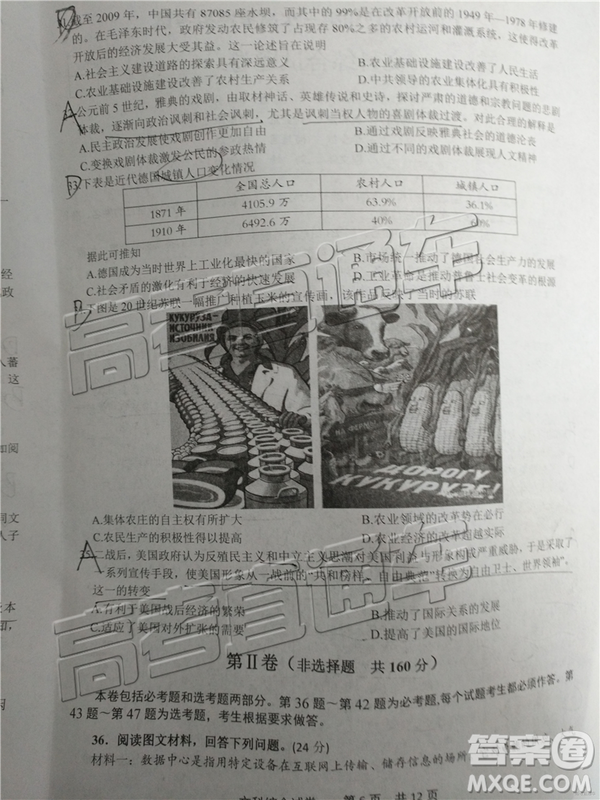 截至 2009 年，中国共有 87085 座水坝，而其中的 99%是在改革开放前的 1949 年—1978 年修建
的。在毛泽东时代，政府发动农民修筑了占现存 80%之多的农村运河和灌溉系统，这使得改革
开放后的经济发展大受其益。这一论述旨在说明
A.社会主义建设道路的探索具有深远意义 B.农业基础设施建设改善了人民生活
C.农业基础设施建设改善了农村生产关系 D.中共领导的农业集体化具有积极性
A
公元前 5 世纪，雅典的戏剧，由取材神话、英雄传说和史诗，探讨严肃的道德和宗教问题的悲剧
体裁，逐渐向政治讽刺和社会讽刺，尤其是讽刺当权人物的喜剧体裁过渡。对此合理的解释是
A.民主政治发展使戏剧创作更加自由 B.通过戏剧反映雅典社会的道德沦丧
C.变换戏剧体裁激发公民的参政热情 D.通过不同的戏剧体裁展现人文精神
33.下表是近代德国城镇人口变化情况
全国总人口 农村人口 城镇人口
1871 年 4105.9 万 63.9% 36.1%
1910 年 6492.6 万 40% 60%
据此可推知
A.德国成为当时世界上工业化最快的国家 B.市场统一推动了德国社会生产力的发展
C.社会矛盾的激化有利于经济的快速发展 D.卫业革命是推动普鲁士社会变革的根源
下图是 20 世纪苏联一幅推广种植玉米的宣传画，该作品反映了当时的苏联
КУКУРУЗА-
ИСТОЧНИК
ИЗОБИЛИЯ
ДОРОГУ
КУКУРУЗЕ!
A.集体农庄的自主权有所扩大 B.农业领域的改革势在必行
C.农民生产的积极性得以提高 D.农业经济的改革超越实际
A
二战后，美国政府认为反殖民主义和中立主义思潮对美国利益与形象构成严重威胁，于是采取了
一系列宣传手段，使美国形象从一战前的“共和榜样、自由典范”转换为“自由卫士、世界领袖”。
这一的转变
A.有利于美国战后经济的繁荣 B.推动了国际关系的发展
C.适应了美国对外扩张的需要 D.提高了美国的国际地位
第Ⅱ卷（非选择题 共 160 分）
本卷包括必考题和选考题两部分。第 36 题～第 42 题为必考题，每个试题考生都必须作答。第
43 题～第 47 题为选考题，考生根据要求做答。
36．阅读图文材料，回答下列问题。(24 分)
材料一：数据中心是指用特定设备在互联网上传输、储存信息的场所
第 6 页 共 12 页
高考直通车
高考直通车
答案圈